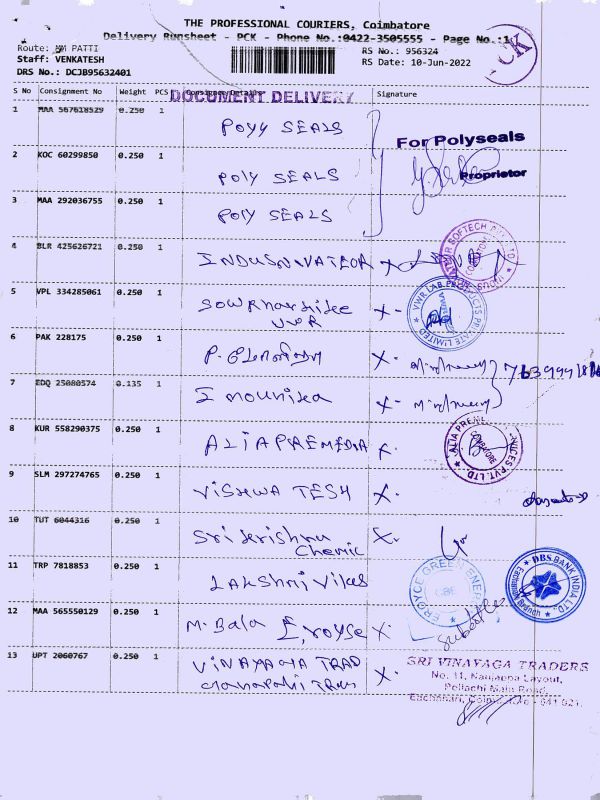 THE PROFESSIONAL COURIERS, Coimbatore
Delivery Runsheet - PCK - Phone No.:0422-3505555 - Page No.:1
PCK
Route: MM PATTI
RS No.: 956324
Staff: VENKATESH
RS Date: 10-Jun-2022
DRS No.: DCJB95632401
S No Consignment No Weight PCS Consignee Details Signature
DOCUMENT DELIVERY
1 MAA 567618529 0.250 1 POLY SEALS
For Polyseals
2 KOC 60299850 0.250 1 POLY SEALS
Proprietor
3 MAA 292036755 0.250 1 POLY SEALS
4 BLR 425626721 0.250 1 INDUSNAVATEOR X
SOFTECH
5 VPL 334285061 0.250 1 X-
VWR
VWR LAB PRODUCTS PRIVATE LIMITED
6 PAK 228175 0.250 1 X-
7 EDQ 25080574 0.135 1 I mounika X-
8 KUR 558290375 0.250 1 ALIAPREMEDIA X.
COIMBATORE
9 SLM 297274765 0.250 1 VISHWA TESH X.
10 TUT 6044316 0.250 1 Sri krishna X.
Chemic
11 TRP 7818853 0.250 1 LAKShmi Vilas
EROYCE GREEN ENERGY
CBE
DBS BANK INDIA LTD
Eachanari Branch
12 MAA 565550129 0.250 1 M. Bala E, royse X.
13 UPT 2060767 0.250 1 VINAYAGA TRAD X-
SRI VINAYAGA TRADERS
No. 11, Nanjappa Layout,
Pollachi Main Road,
Eachanari, Coimbatore - 641 021.